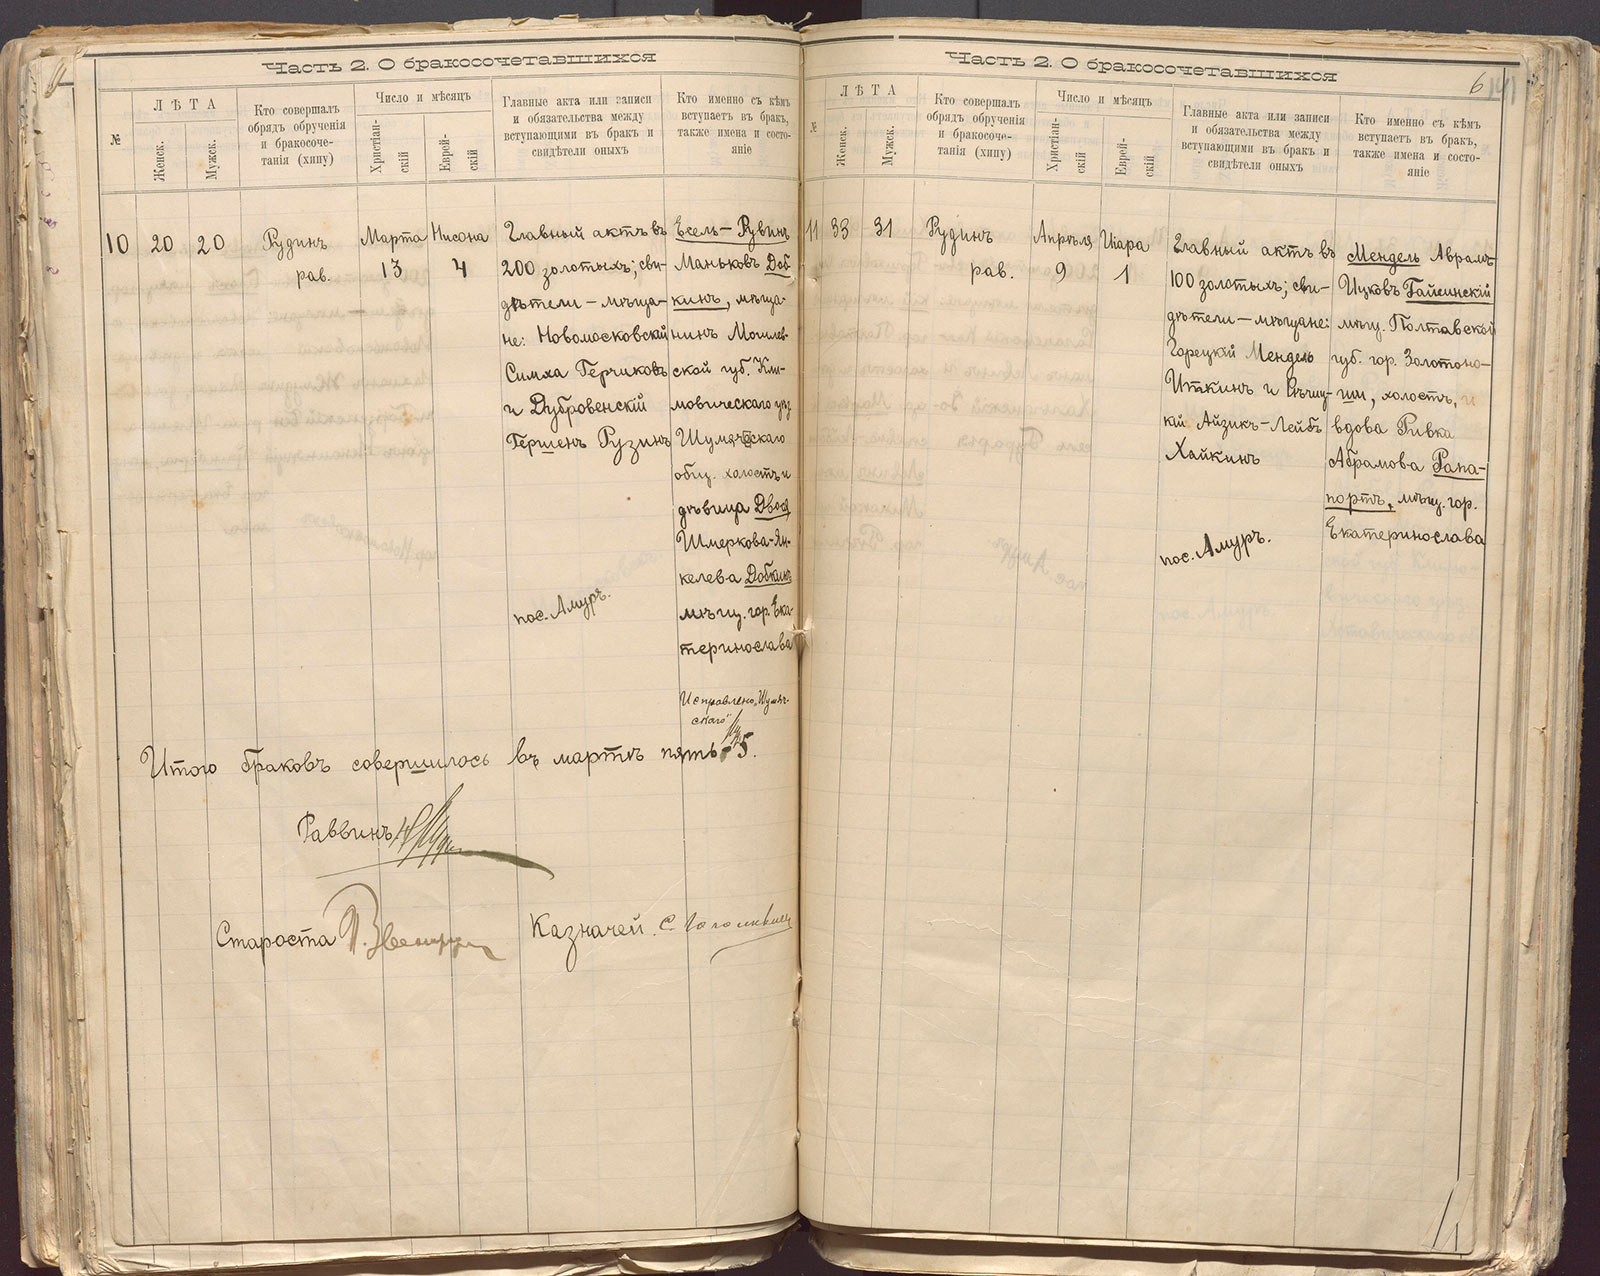 Часть 2. О бракосочетавшихся
№
ЛѢТА
Женск.
Мужск.
Кто совершалъ
обрядъ обрученія
и бракосоче-
танія (хипу)
Число и мѣсяцъ
Христіан-
скій
Еврей-
скій
Главные акта или записи
и обязательства между
вступающими въ бракъ и
свидѣтели оныхъ
Кто именно съ кѣмъ
вступаетъ въ бракъ,
также имена и состо-
яніе
10
20
20
Рудинъ
рав.
Марта
13
Нисона
4
Главный актъ въ
200 золотыхъ; сви-
дѣтели — мѣща-
не: Новомосковскій
Симха Герчиковъ
и Дубровенскій
Гершенъ Рузинъ
пос. Амуръ.
Есель-Рувинъ
Маньковъ Доб-
кинъ, мѣща-
нинъ Могилев-
ской губ. Кли-
мовическаго уѣз.
Шумячскаго
общ. холостъ и
дѣвица Двося
Шмеркова-Ян-
келева Добкинъ
мѣщ. гор. Ека-
теринослава
Исправлено „Шумяч-
скаго"
Итого браковъ совершилось въ мартѣ пять - 5.
Раввинъ
Староста
Казначей
Часть 2. О бракосочетавшихся
6
141
№
ЛѢТА
Женск.
Мужск.
Кто совершалъ
обрядъ обрученія
и бракосоче-
танія (хипу)
Число и мѣсяцъ
Христіан-
скій
Еврей-
скій
Главные акта или записи
и обязательства между
вступающими въ бракъ и
свидѣтели оныхъ
Кто именно съ кѣмъ
вступаетъ въ бракъ,
также имена и состо-
яніе
11
33
31
Рудинъ
рав.
Апрѣля
9
Иіара
1
Главный актъ въ
100 золотыхъ; сви-
дѣтели — мѣщане:
Горецкій Мендель
Иткинъ и
кій Айзикъ-Лейбъ
Хайкинъ
пос. Амуръ.
Мендель Аврамъ-
Ицковъ Гайсинскій
мѣщ. Полтавской
губ. гор. Золотоно-
ши, холостъ, и
вдова Ривка
Абрамова Рапа-
портъ, мѣщ. гор.
Екатеринослава